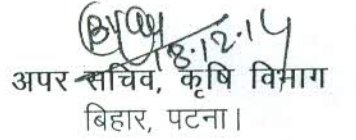 18.12.14
अपर सचिव, कृषि विभाग
बिहार, पटना।